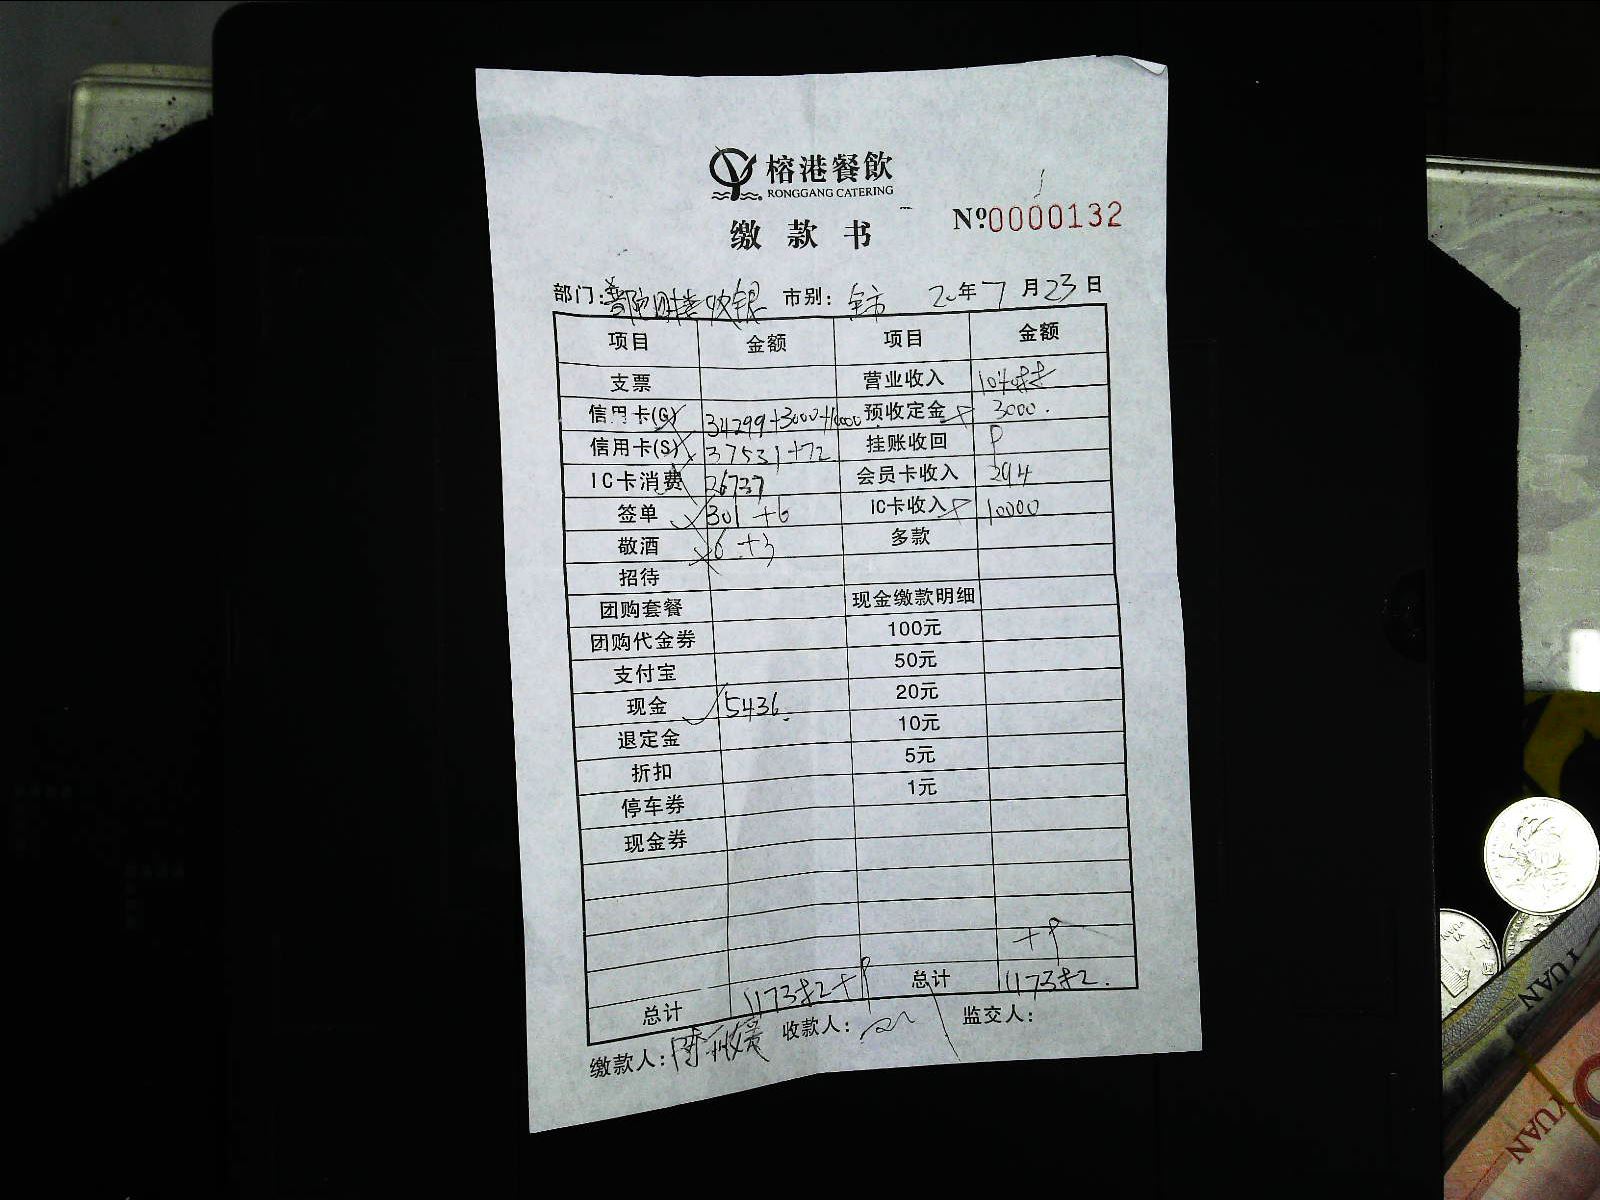 榕港餐飲
RONGGANG CATERING
缴款书 Nº:0000132
部门: 收银 市别: 全市 20年7月23日
项目 金额 项目 金额
支票 营业收入
信用卡(G) 34299+3000+10000 预收定金 3000.
信用卡(S) 37531+72 挂账收回
IC卡消费 26737 会员卡收入 294
签单 301+6 IC卡收入 10000
敬酒 6+3 多款
招待
团购套餐 现金缴款明细
团购代金券 100元
支付宝 50元
现金 5436. 20元
退定金 10元
折扣 5元
停车券 1元
现金券
总计 总计
缴款人: 收款人: 监交人:
YUAN
YUAN